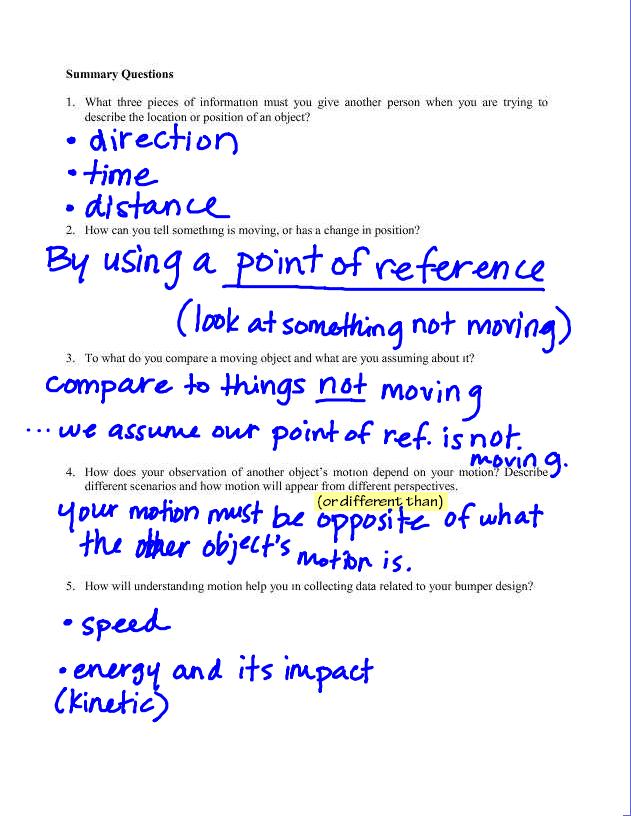 Summary Questions
1. What three pieces of information must you give another person when you are trying to
describe the location or position of an object?
• direction
• time
• distance
2. How can you tell something is moving, or has a change in position?
By using a point of reference
(look at something not moving)
3. To what do you compare a moving object and what are you assuming about it?
compare to things not moving
... we assume our point of ref. is not
moving.
4. How does your observation of another object's motion depend on your motion? Describe
different scenarios and how motion will appear from different perspectives.
(or different than)
your motion must be opposite of what
the other object's motion is.
5. How will understanding motion help you in collecting data related to your bumper design?
• speed
• energy and its impact
(kinetic)